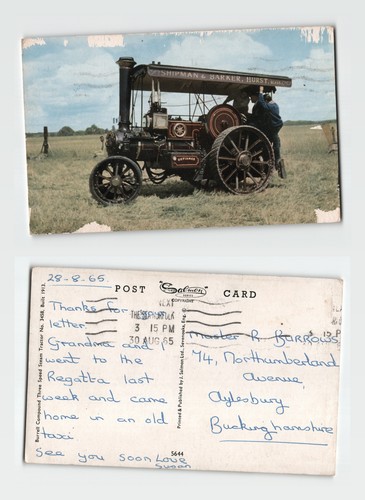 SHIPMAN & BARKER, HURST
28-8-65.
POST Salmon SERIES CARD
COPYRIGHT
Thanks for
letter
Grandma and I
went to the
Regatta last
week and came
home in an old
taxi
See you soon Love
Susan
3 15 PM
30 AUG 65
Burrell Compound Three Speed Steam Tractor No. 3458, Built 1913.
Printed & Published by J. Salmon Ltd., Sevenoaks, Eng.
5644
Master R BARROWS
74, Northumberland
Avenue,
Aylesbury
Buckinghamshire